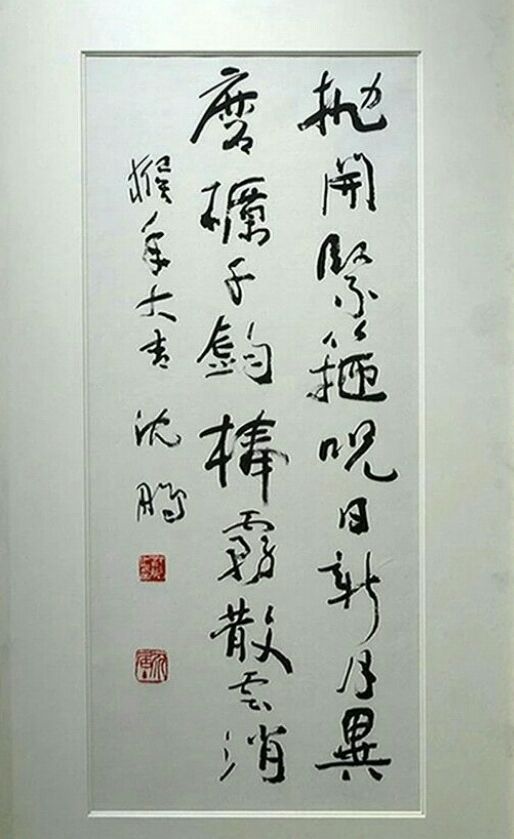 抛開緊箍咒日新月異
磨櫔千鈞棒霧散雲消
猴年大吉 沈鵬